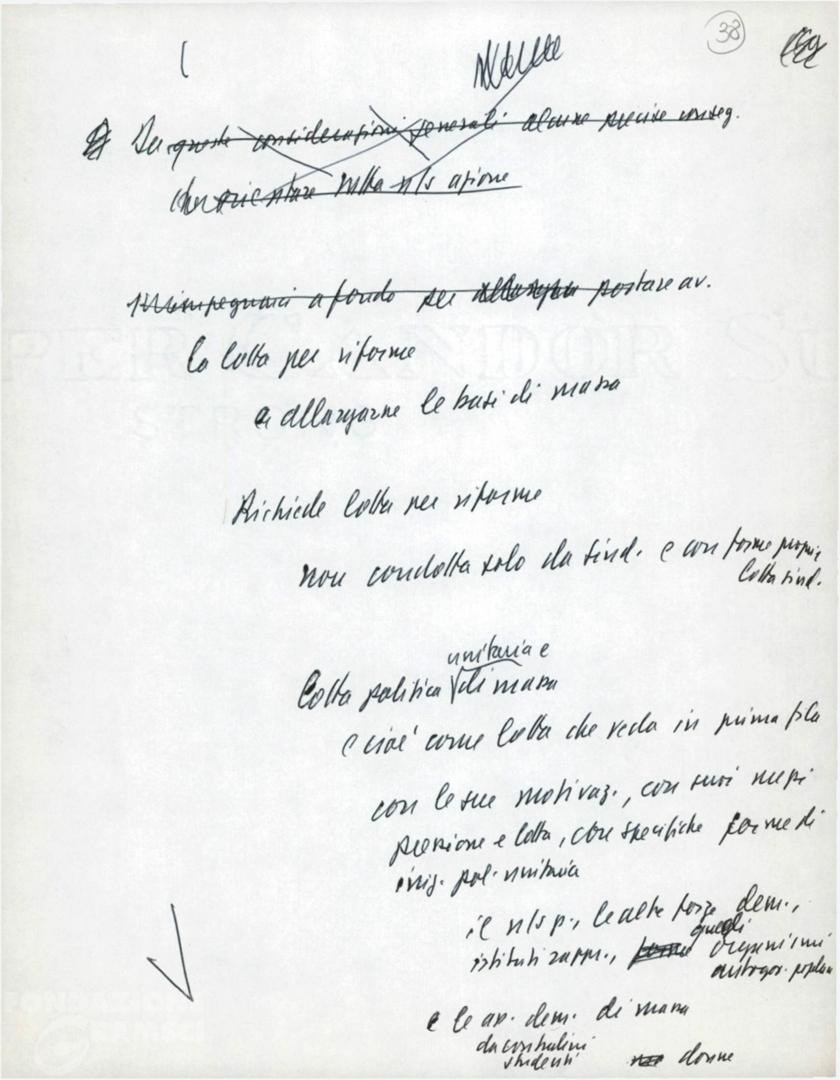 38
Da queste considerazioni generali alcune precise conseg.
che orientare nella n/s azione
impegnarci a fondo per portare av.
la lotta per riforme
e allargarne le basi di massa
Richiede lotta per riforme
non condotta solo da sind. e con forme proprie
lotta sind.
unitaria e
lotta politica di massa
e cioè come lotta che veda in prima fila
con le sue motivaz., con suoi mezzi
pressione e lotta, con specifiche forme di
iniz. pol. unitaria
il n/s p., le altre forze dem.,
quegli
istituti rappr., organismi
autogov. popolare
e le di massa
da contadini
studenti donne